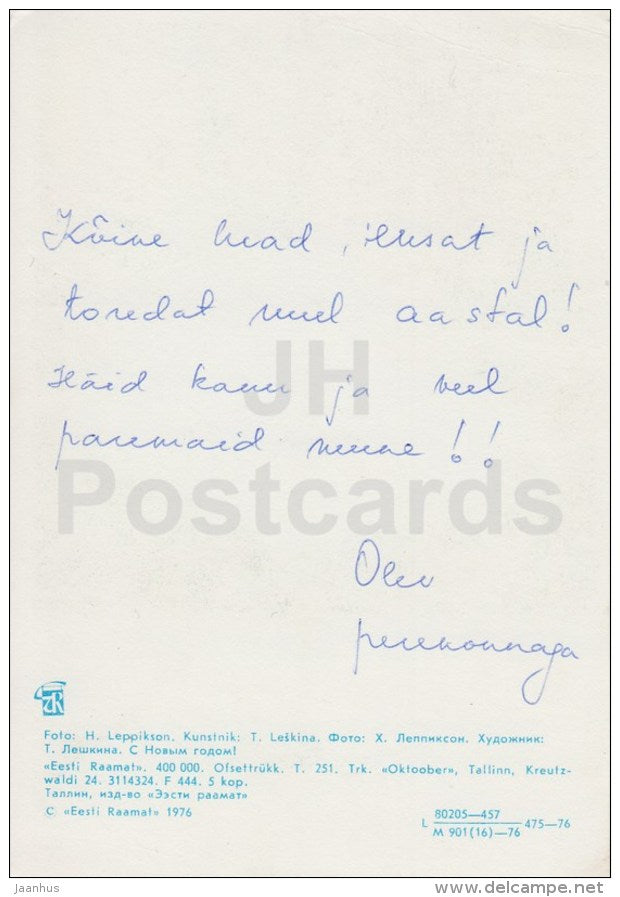 Kõike head, ilusat ja
toredat uuel aastal!
Häid kanu ja veel
paremaid mune!!
Olev
perekonnaga
JH
Postcards
Foto: H. Leppikson. Kunstnik: T. Leškina. Фото: Х. Леппиксон. Художник:
Т. Лешкина. С Новым годом!
«Eesti Raamat». 400 000. Ofsettrükk. T. 251. Trk. «Oktoober», Tallinn, Kreutz-
waldi 24. 3114324. F 444. 5 kop.
Таллин, изд-во «Ээсти раамат»
© «Eesti Raamat» 1976
L 80205—457
M 901(16)—76 475—76
jaanhus
delcampe.net